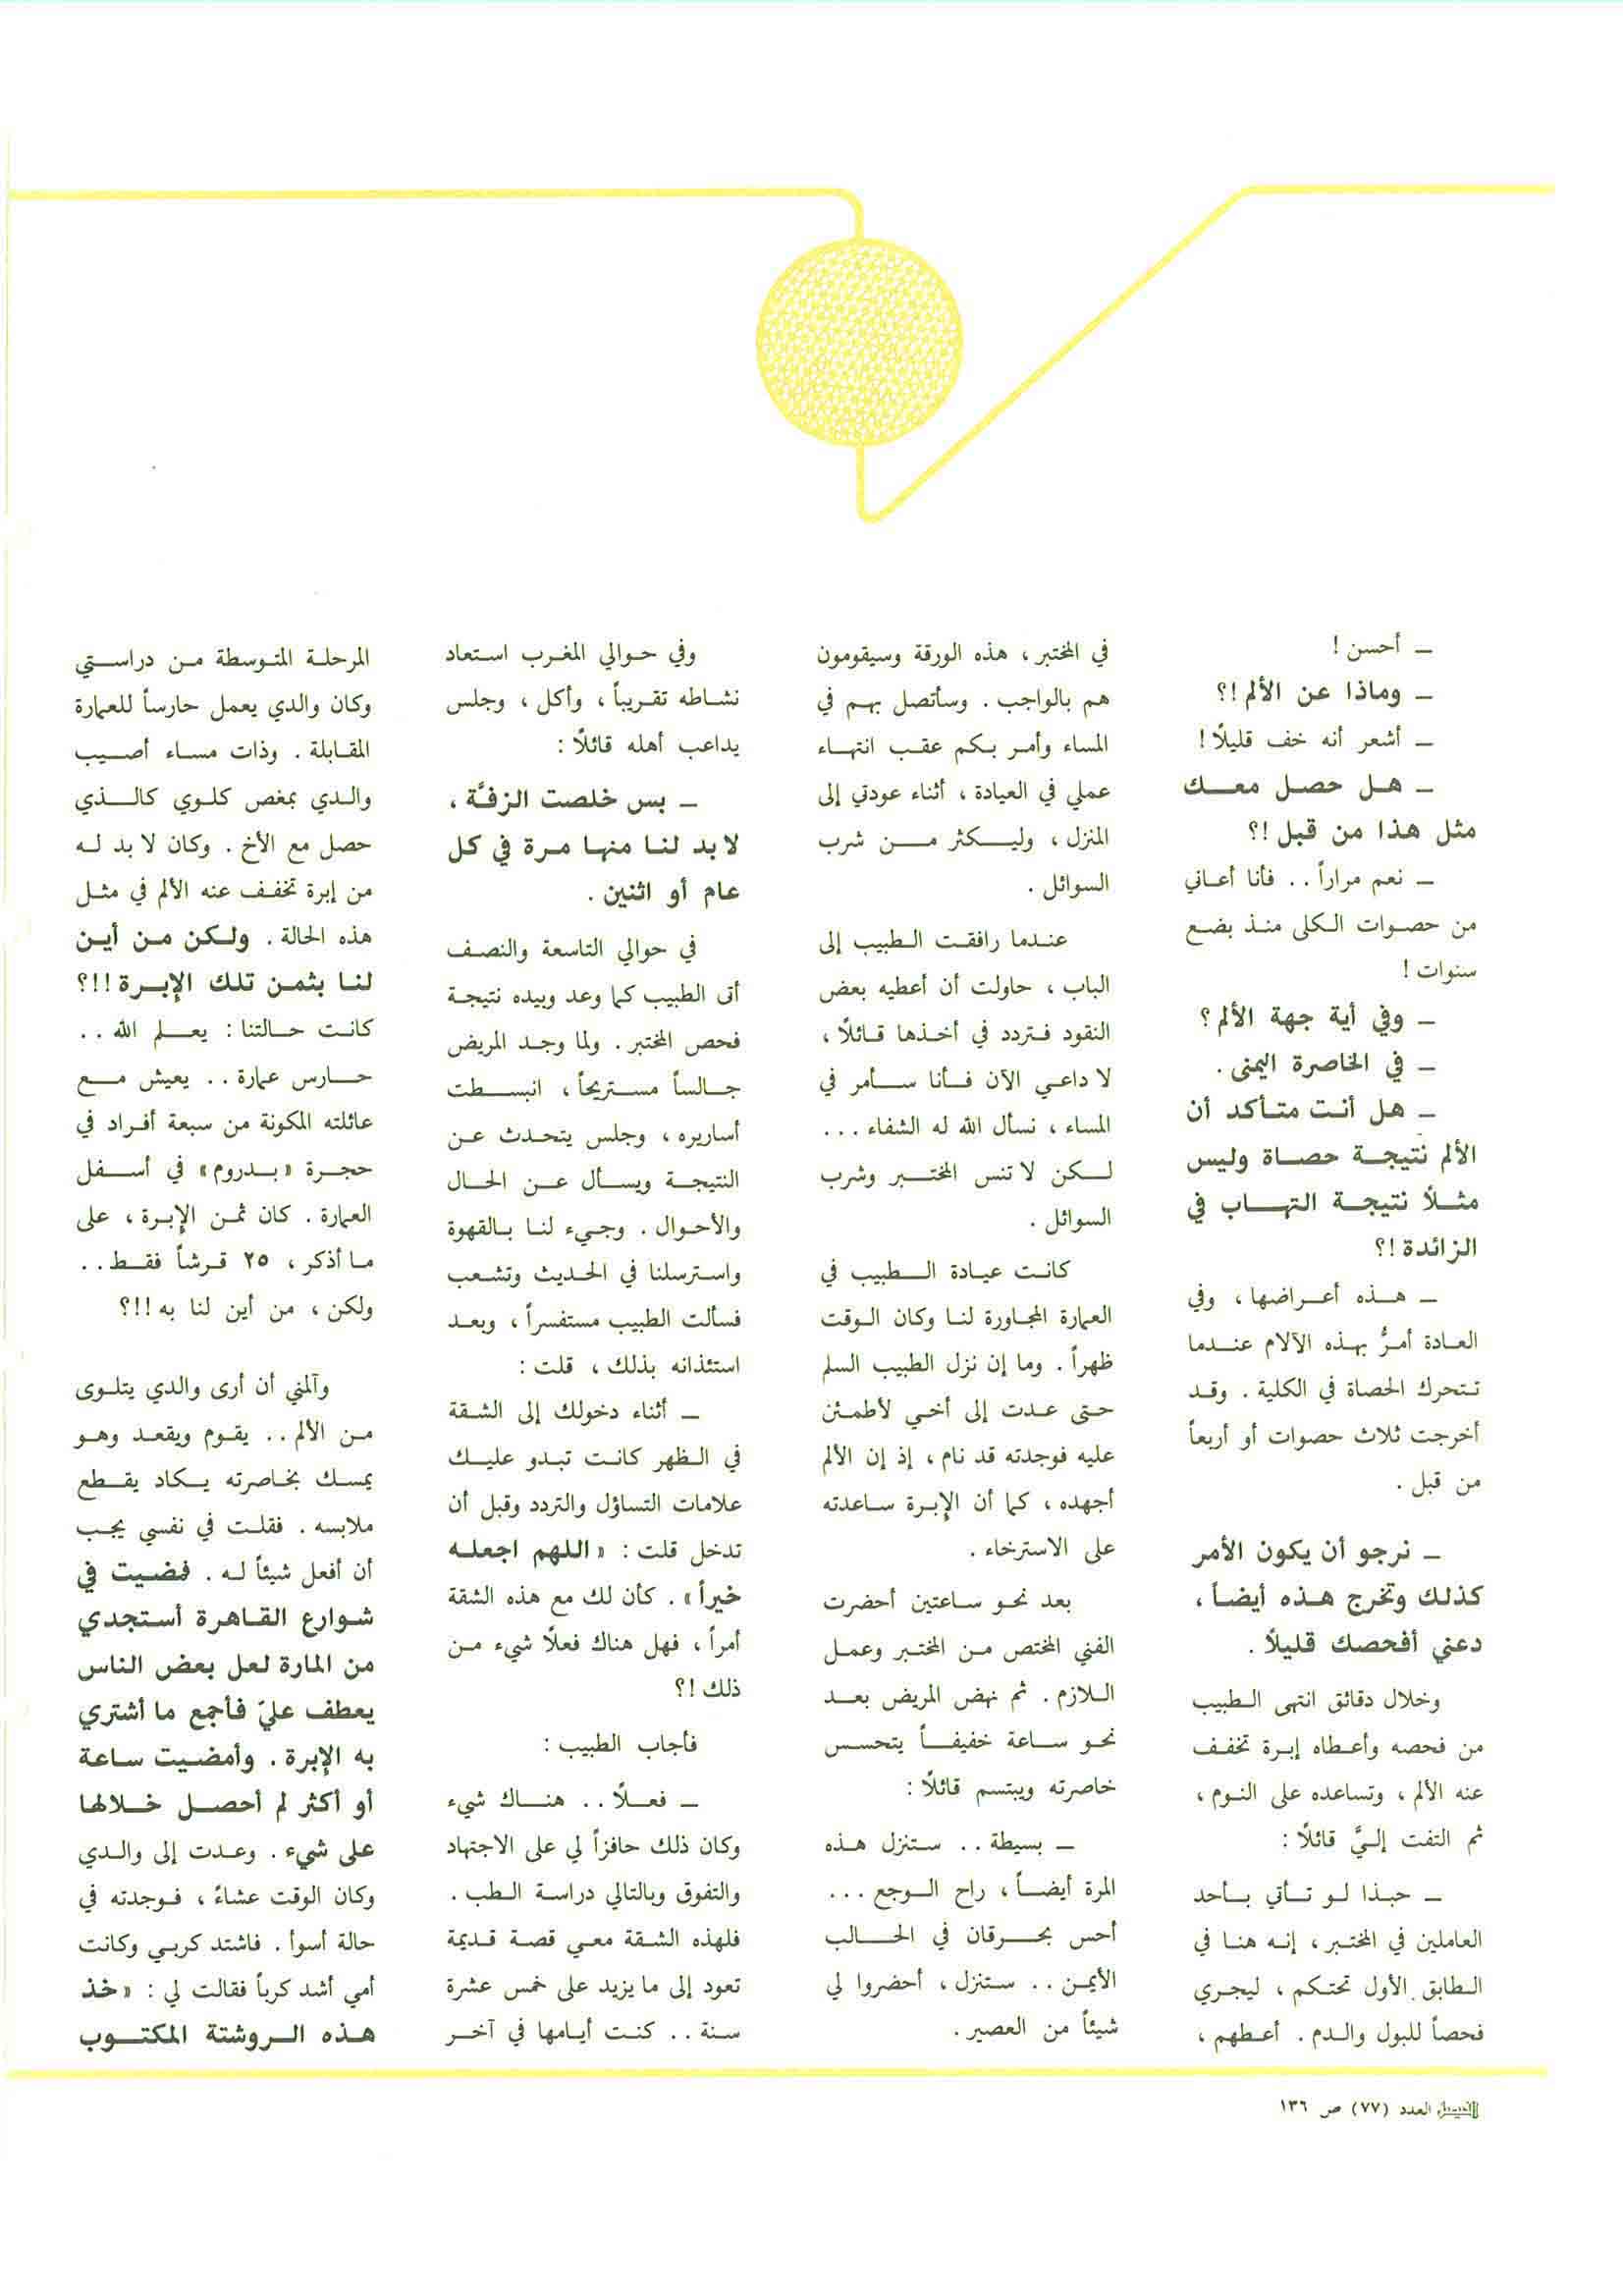 ـ أحسن !
ـ وماذا عن الألم !؟
ـ أشعر أنه خف قليلًا !
ـ هل حصل معك
مثل هذا من قبل !؟
ـ نعم مراراً .. فأنا أعاني
من حصوات الكلى منذ بضع
سنوات !
ـ وفي أية جهة الألم ؟
ـ في الخاصرة اليمنى .
ـ هل أنت متأكد أن
الألم نتيجة حصاة وليس
مثلًا نتيجة التهاب في
الزائدة !؟
ـ هذه أعراضها ، وفي
العادة أمرُّ بهذه الآلام عندما
تتحرك الحصاة في الكلية . وقد
أخرجت ثلاث حصوات أو أربعاً
من قبل .
ـ نرجو أن يكون الأمر
كذلك وتخرج هذه أيضاً ،
دعني أفحصك قليلًا .
وخلال دقائق انتهى الطبيب
من فحصه وأعطاه إبرة تخفف
عنه الألم ، وتساعده على النوم ،
ثم التفت إليَّ قائلًا :
ـ حبذا لو تأتي بأحد
العاملين في المختبر ، إنه هنا في
الطابق الأول تحتكم ، ليجري
فحصاً للبول والدم . أعطهم ،
في المختبر ، هذه الورقة وسيقومون
هم بالواجب . وسأتصل بهم في
المساء وأمر بكم عقب انتهاء
عملي في العيادة ، أثناء عودتي إلى
المنزل ، وليكثر من شرب
السوائل .
عندما رافقت الطبيب إلى
الباب ، حاولت أن أعطيه بعض
النقود فتردد في أخذها قائلًا ،
لا داعي الآن فأنا سأمر في
المساء ، نسأل الله له الشفاء ...
لكن لا تنس المختبر وشرب
السوائل .
كانت عيادة الطبيب في
العمارة المجاورة لنا وكان الوقت
ظهراً . وما إن نزل الطبيب السلم
حتى عدت إلى أخي لأطمئن
عليه فوجدته قد نام ، إذ إن الألم
أجهده ، كما أن الإبرة ساعدته
على الاسترخاء .
بعد نحو ساعتين أحضرت
الفني المختص من المختبر وعمل
اللازم . ثم نهض المريض بعد
نحو ساعة خفيفاً يتحسس
خاصرته ويبتسم قائلًا :
ـ بسيطة .. ستنزل هذه
المرة أيضاً ، راح الوجع ...
أحس بحرقان في الحالب
الأيمن .. ستنزل ، أحضروا لي
شيئاً من العصير .
وفي حوالي المغرب استعاد
نشاطه تقريباً ، وأكل ، وجلس
يداعب أهله قائلًا :
ـ بس خلصت الزفّة ،
لا بد لنا منها مرة في كل
عام أو اثنين .
في حوالي التاسعة والنصف
أتى الطبيب كما وعد وبيده نتيجة
فحص المختبر . ولما وجد المريض
جالساً مستريحاً ، انبسطت
أساريره ، وجلس يتحدث عن
النتيجة ويسأل عن الحال
والأحوال . وجيء لنا بالقهوة
واسترسلنا في الحديث وتشعب
فسألت الطبيب مستفسراً ، وبعد
استئذانه بذلك ، قلت :
ـ أثناء دخولك إلى الشقة
في الظهر كانت تبدو عليك
علامات التساؤل والتردد وقبل أن
تدخل قلت : «اللهم اجعله
خيراً» . كأن لك مع هذه الشقة
أمراً ، فهل هناك فعلًا شيء من
ذلك !؟
فأجاب الطبيب :
ـ فعلًا .. هناك شيء
وكان ذلك حافزاً لي على الاجتهاد
والتفوق وبالتالي دراسة الطب .
فلهذه الشقة معي قصة قديمة
تعود إلى ما يزيد على خمس عشرة
سنة .. كنت أيامها في آخر
المرحلة المتوسطة من دراستي
وكان والدي يعمل حارساً للعمارة
المقابلة . وذات مساء أصيب
والدي بمغص كلوي كالذي
حصل مع الأخ . وكان لا بد له
من إبرة تخفف عنه الألم في مثل
هذه الحالة . ولكن من أين
لنا بثمن تلك الإبرة !!؟
كانت حالتنا : يعلم الله ..
حارس عمارة .. يعيش مع
عائلته المكونة من سبعة أفراد في
حجرة «بدروم» في أسفل
العمارة . كان ثمن الإبرة ، على
ما أذكر ، ٢٥ قرشاً فقط ..
ولكن ، من أين لنا به !!؟
وآلمني أن أرى والدي يتلوى
من الألم .. يقوم ويقعد وهو
يمسك بخاصرته يكاد يقطع
ملابسه . فقلت في نفسي يجب
أن أفعل شيئاً له . فمضيت في
شوارع القاهرة أستجدي
من المارة لعل بعض الناس
يعطف عليّ فأجمع ما أشتري
به الإبرة . وأمضيت ساعة
أو أكثر لم أحصل خلالها
على شيء . وعدت إلى والدي
وكان الوقت عشاءً ، فوجدته في
حالة أسوأ . فاشتد كربي وكانت
أمي أشد كرباً فقالت لي : «خذ
هذه الروشتة المكتوب
الفيصل العدد (٧٧) ص ١٣٦